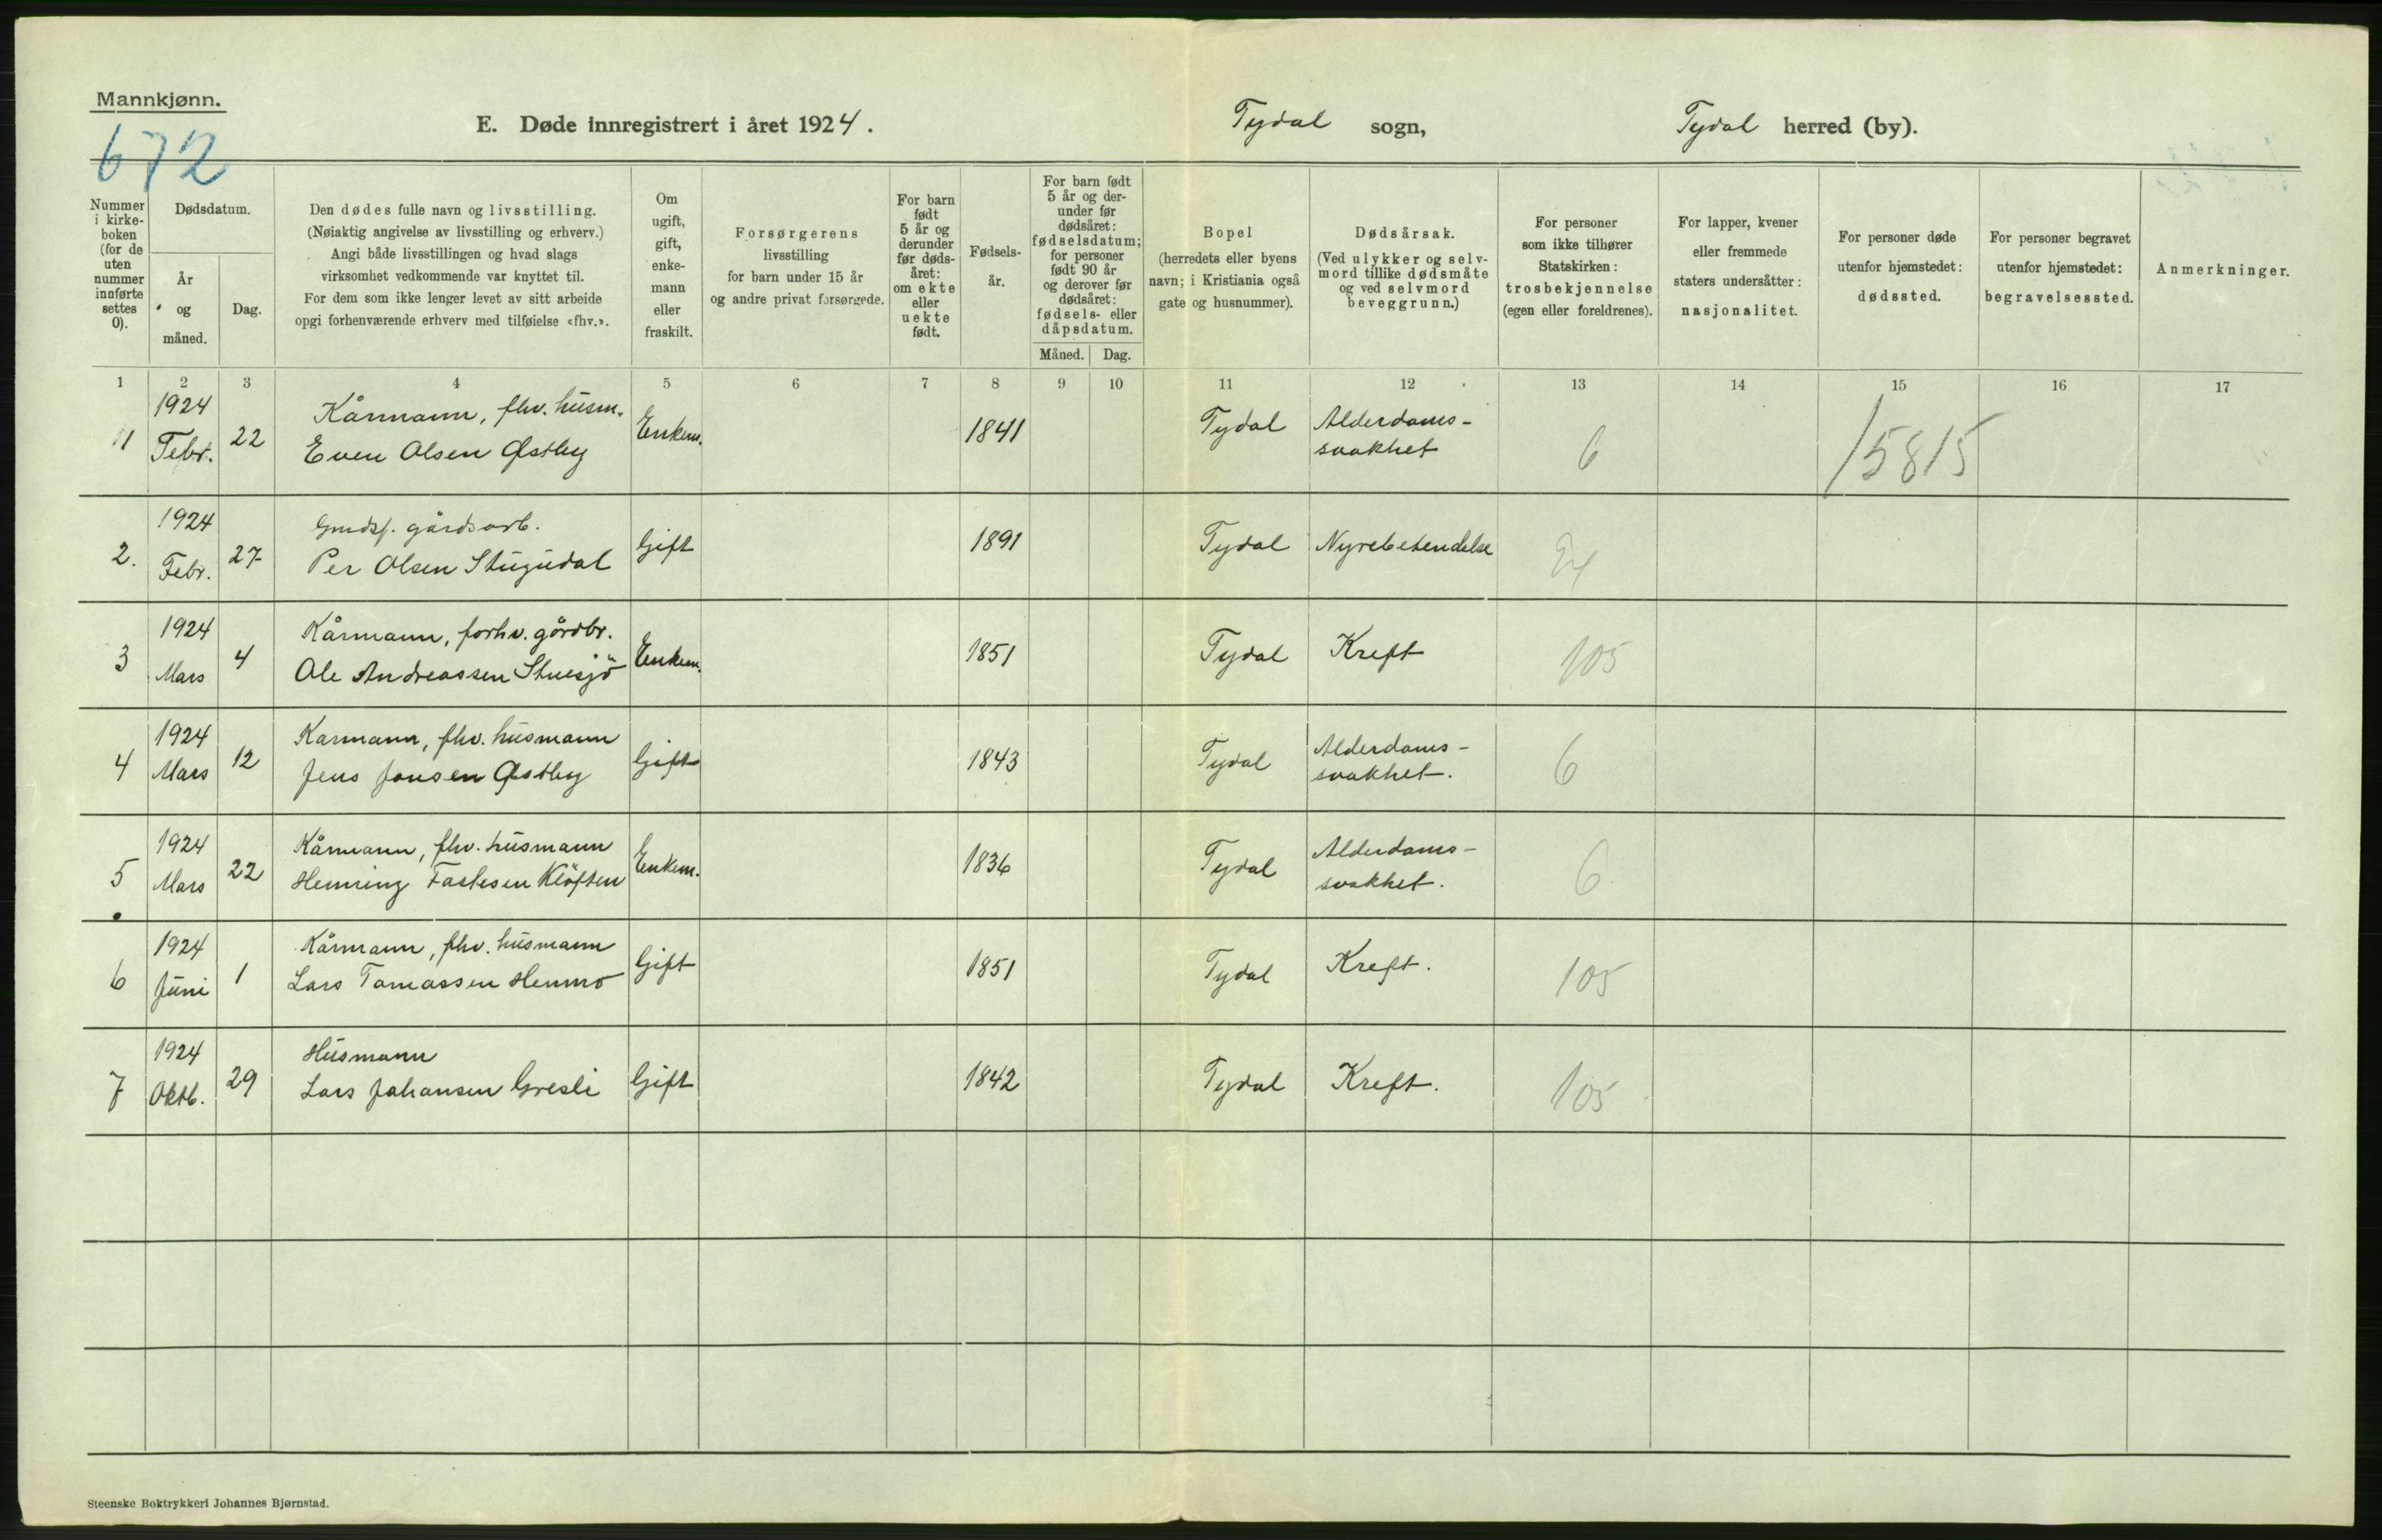 Mannkjønn.
672
E. Døde innregistrert i året 1924.
Tydal sogn,
Tydal herred (by).
Nummer
i kirke-
boken
(for de
uten
nummer
innførte
settes
0).
Dødsdatum.
År
og
måned.
Dag.
Den dødes fulle navn og livsstilling.
(Nøiaktig angivelse av livsstilling og erhverv.)
Angi både livsstillingen og hvad slags
virksomhet vedkommende var knyttet til.
For dem som ikke lenger levet av sitt arbeide
opgi forhenværende erhverv med tilføielse «fhv.».
Om
ugift,
gift,
enke-
mann
eller
fraskilt.
Forsørgerens
livsstilling
for barn under 15 år
og andre privat forsørgede.
For barn
født
5 år og
derunder
før døds-
året:
om ekte
eller
uekte
født.
Fødsels-
år.
For barn født
5 år og der-
under før
dødsåret:
fødselsdatum;
for personer
født 90 år
og derover før
dødsåret:
fødsels- eller
dåpsdatum.
Måned.
Dag.
Bopel
(herredets eller byens
navn; i Kristiania også
gate og husnummer).
Dødsårsak.
(Ved ulykker og selv-
mord tillike dødsmåte
og ved selvmord
beveggrunn.)
For personer
som ikke tilhører
Statskirken:
trosbekjennelse
(egen eller foreldrenes).
For lapper, kvener
eller fremmede
staters undersåtter:
nasjonalitet.
For personer døde
utenfor hjemstedet:
dødssted.
For personer begravet
utenfor hjemstedet:
begravelsessted.
Anmerkninger.
1 2 3 4 5 6 7 8 9 10 11 12 13 14 15 16 17
1924 Kårmann, fhv. husm. Alderdoms-
1 Febr. 22 Even Olsen Østby Enkem. 1841 Tydal svakhet 6 15815
1924 gårdsarb.
2. Febr. 27 Per Olsen Stugudal Gift 1891 Tydal Nyrebetendelse
1924 Kårmann, forhv. gårdbr.
3 Mars 4 Ole Andreassen Stuesjö Enkem. 1851 Tydal Kreft 105
1924 Karmann, fhv. husmann Alderdoms-
4 Mars 12 Jens Jonsen Østby Gift 1843 Tydal svakhet. 6
1924 Kårmann, fhv. husmann Alderdoms-
5 Mars 22 Henning Fastesen Kløften Enkem. 1836 Tydal svakhet. 6
1924 Kårmann, fhv. husmann
6 Juni 1 Lars Tomassen Henmo Gift 1851 Tydal Kreft. 105
1924 Husmann
7 Oktb. 29 Lars Johansen Gresli Gift 1842 Tydal Kreft. 105
Steenske Boktrykkeri Johannes Bjørnstad.